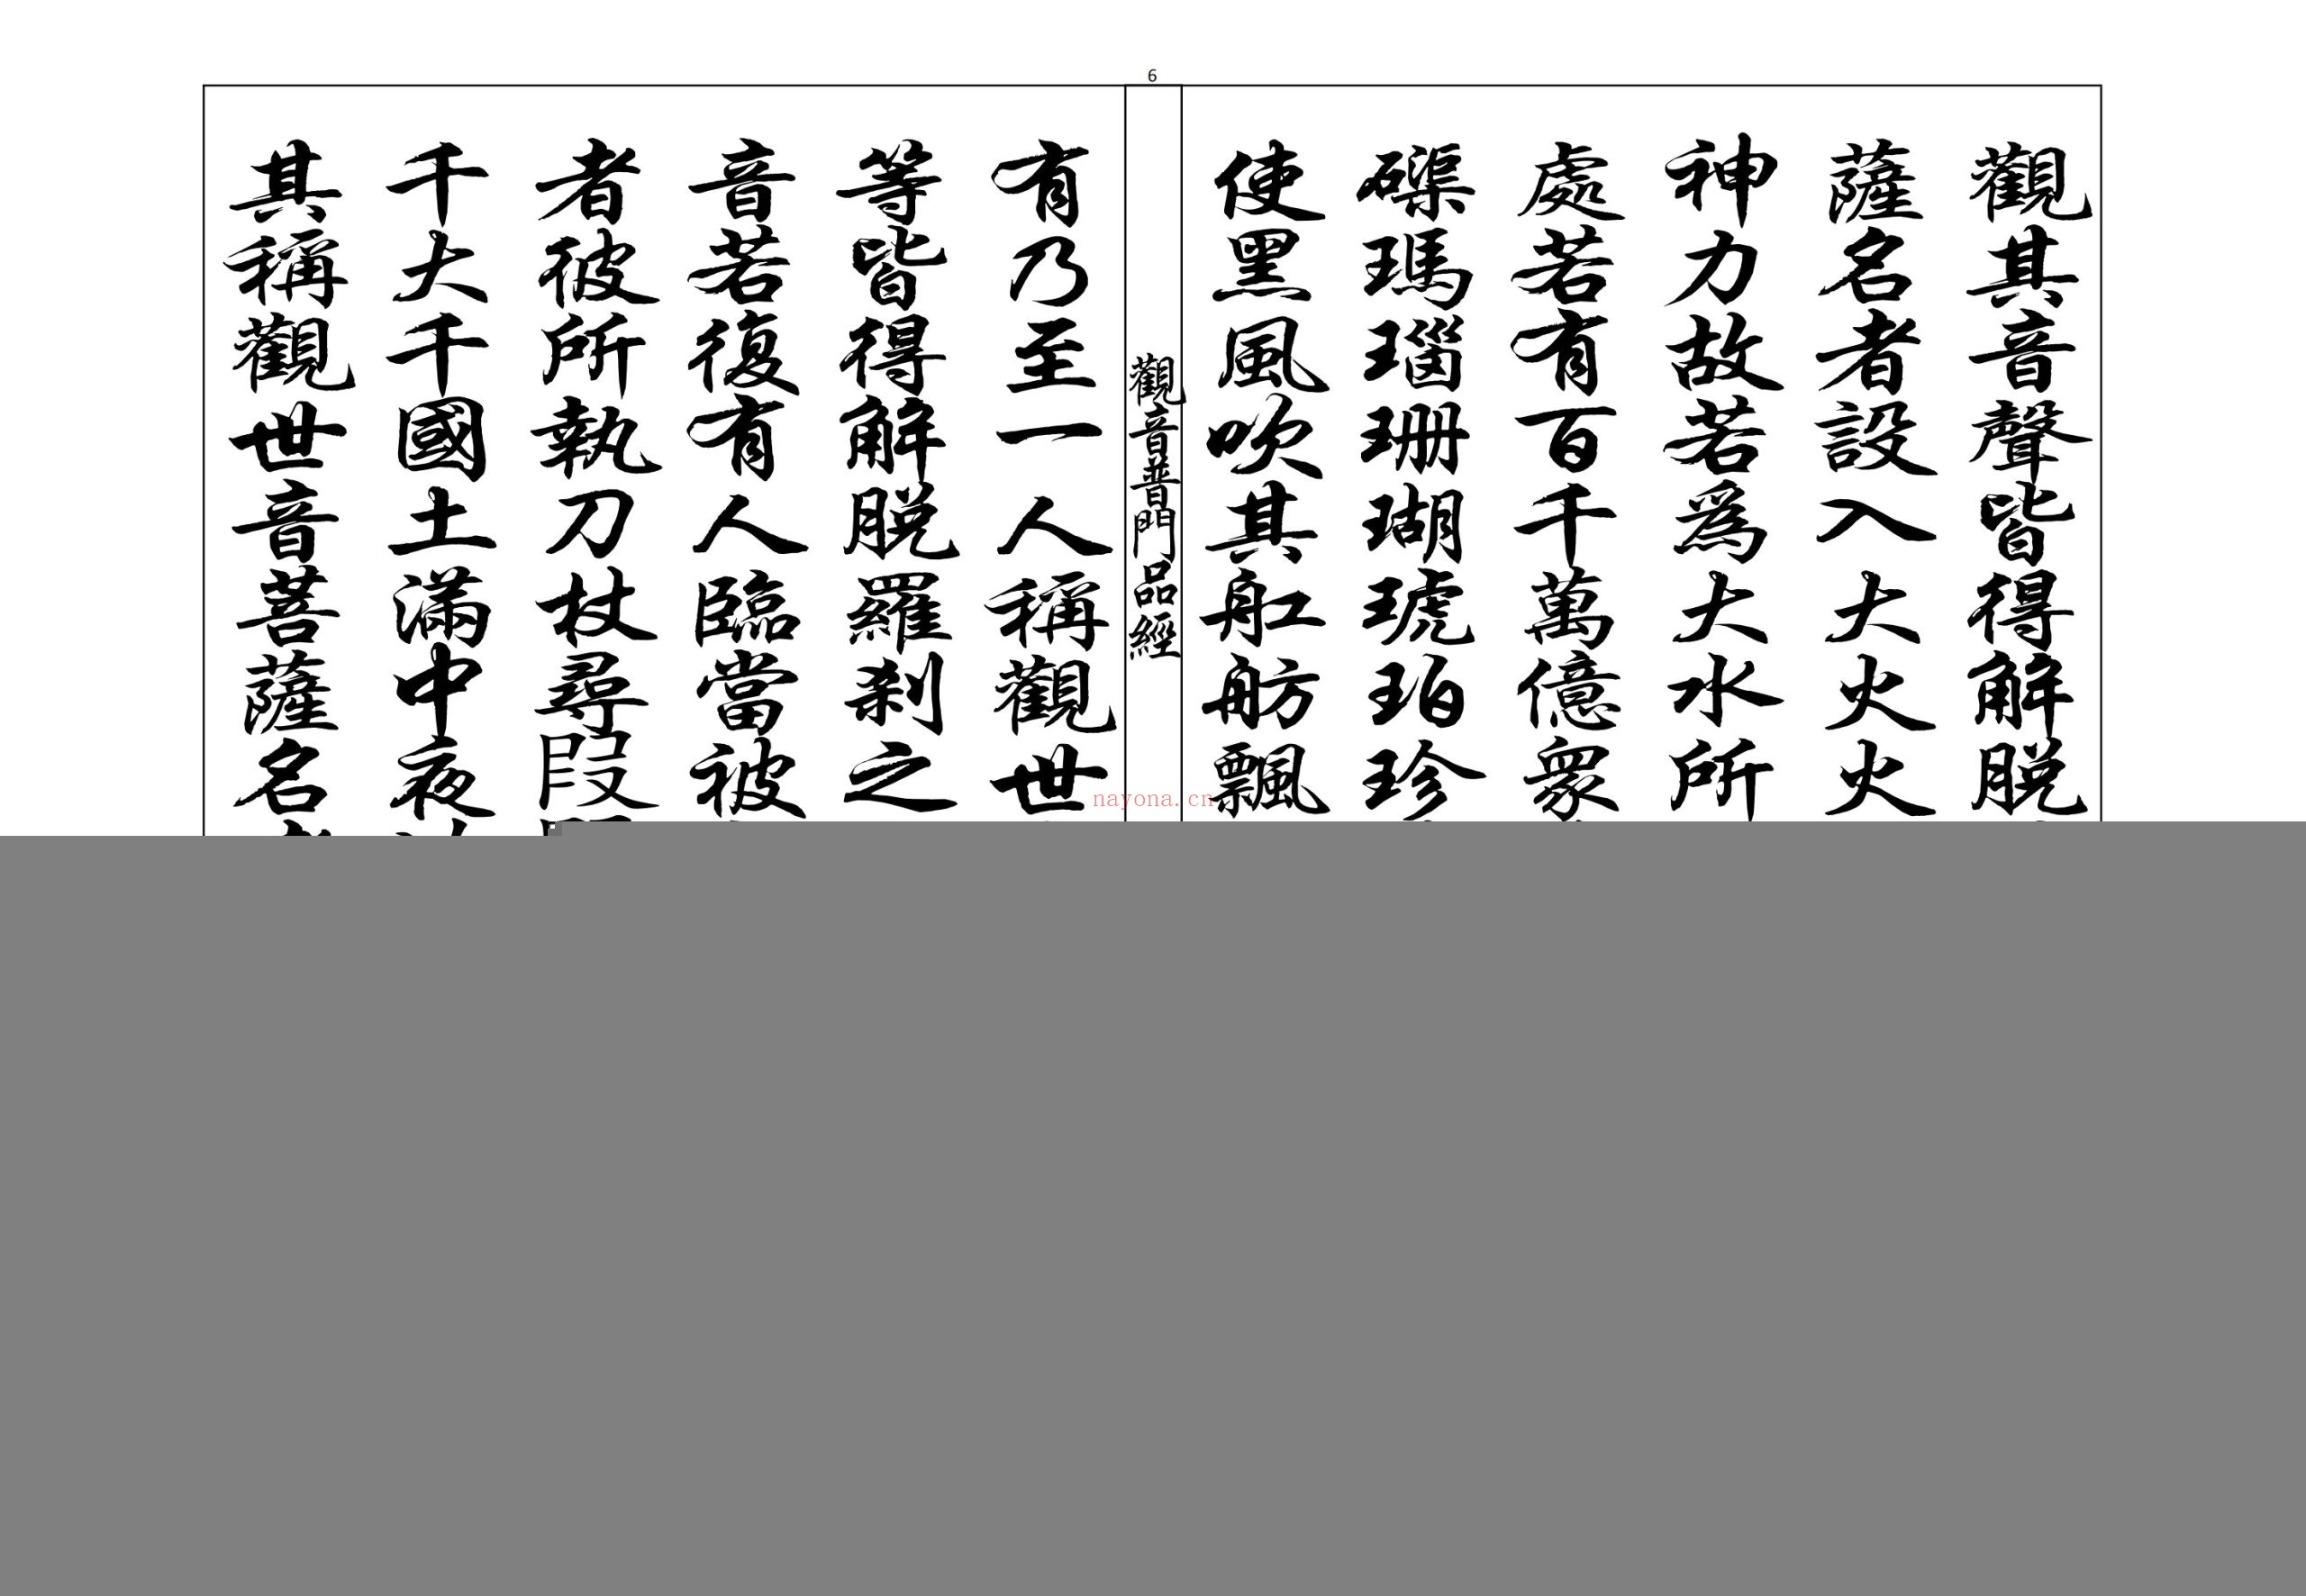 6
觀其音聲皆得解脫
薩名者設入大火火
神力故若為大水所
處若有百千萬億眾
硨瑪瑙珊瑚琥珀珍
使黑風吹其船舫飄
觀音普門品經
有乃至一人稱觀世
等皆得解脫羅剎之
音若復有人臨當被
者彼所執刀杖尋段
千大千國土滿中夜
其稱觀世音菩薩名
nayona.cn